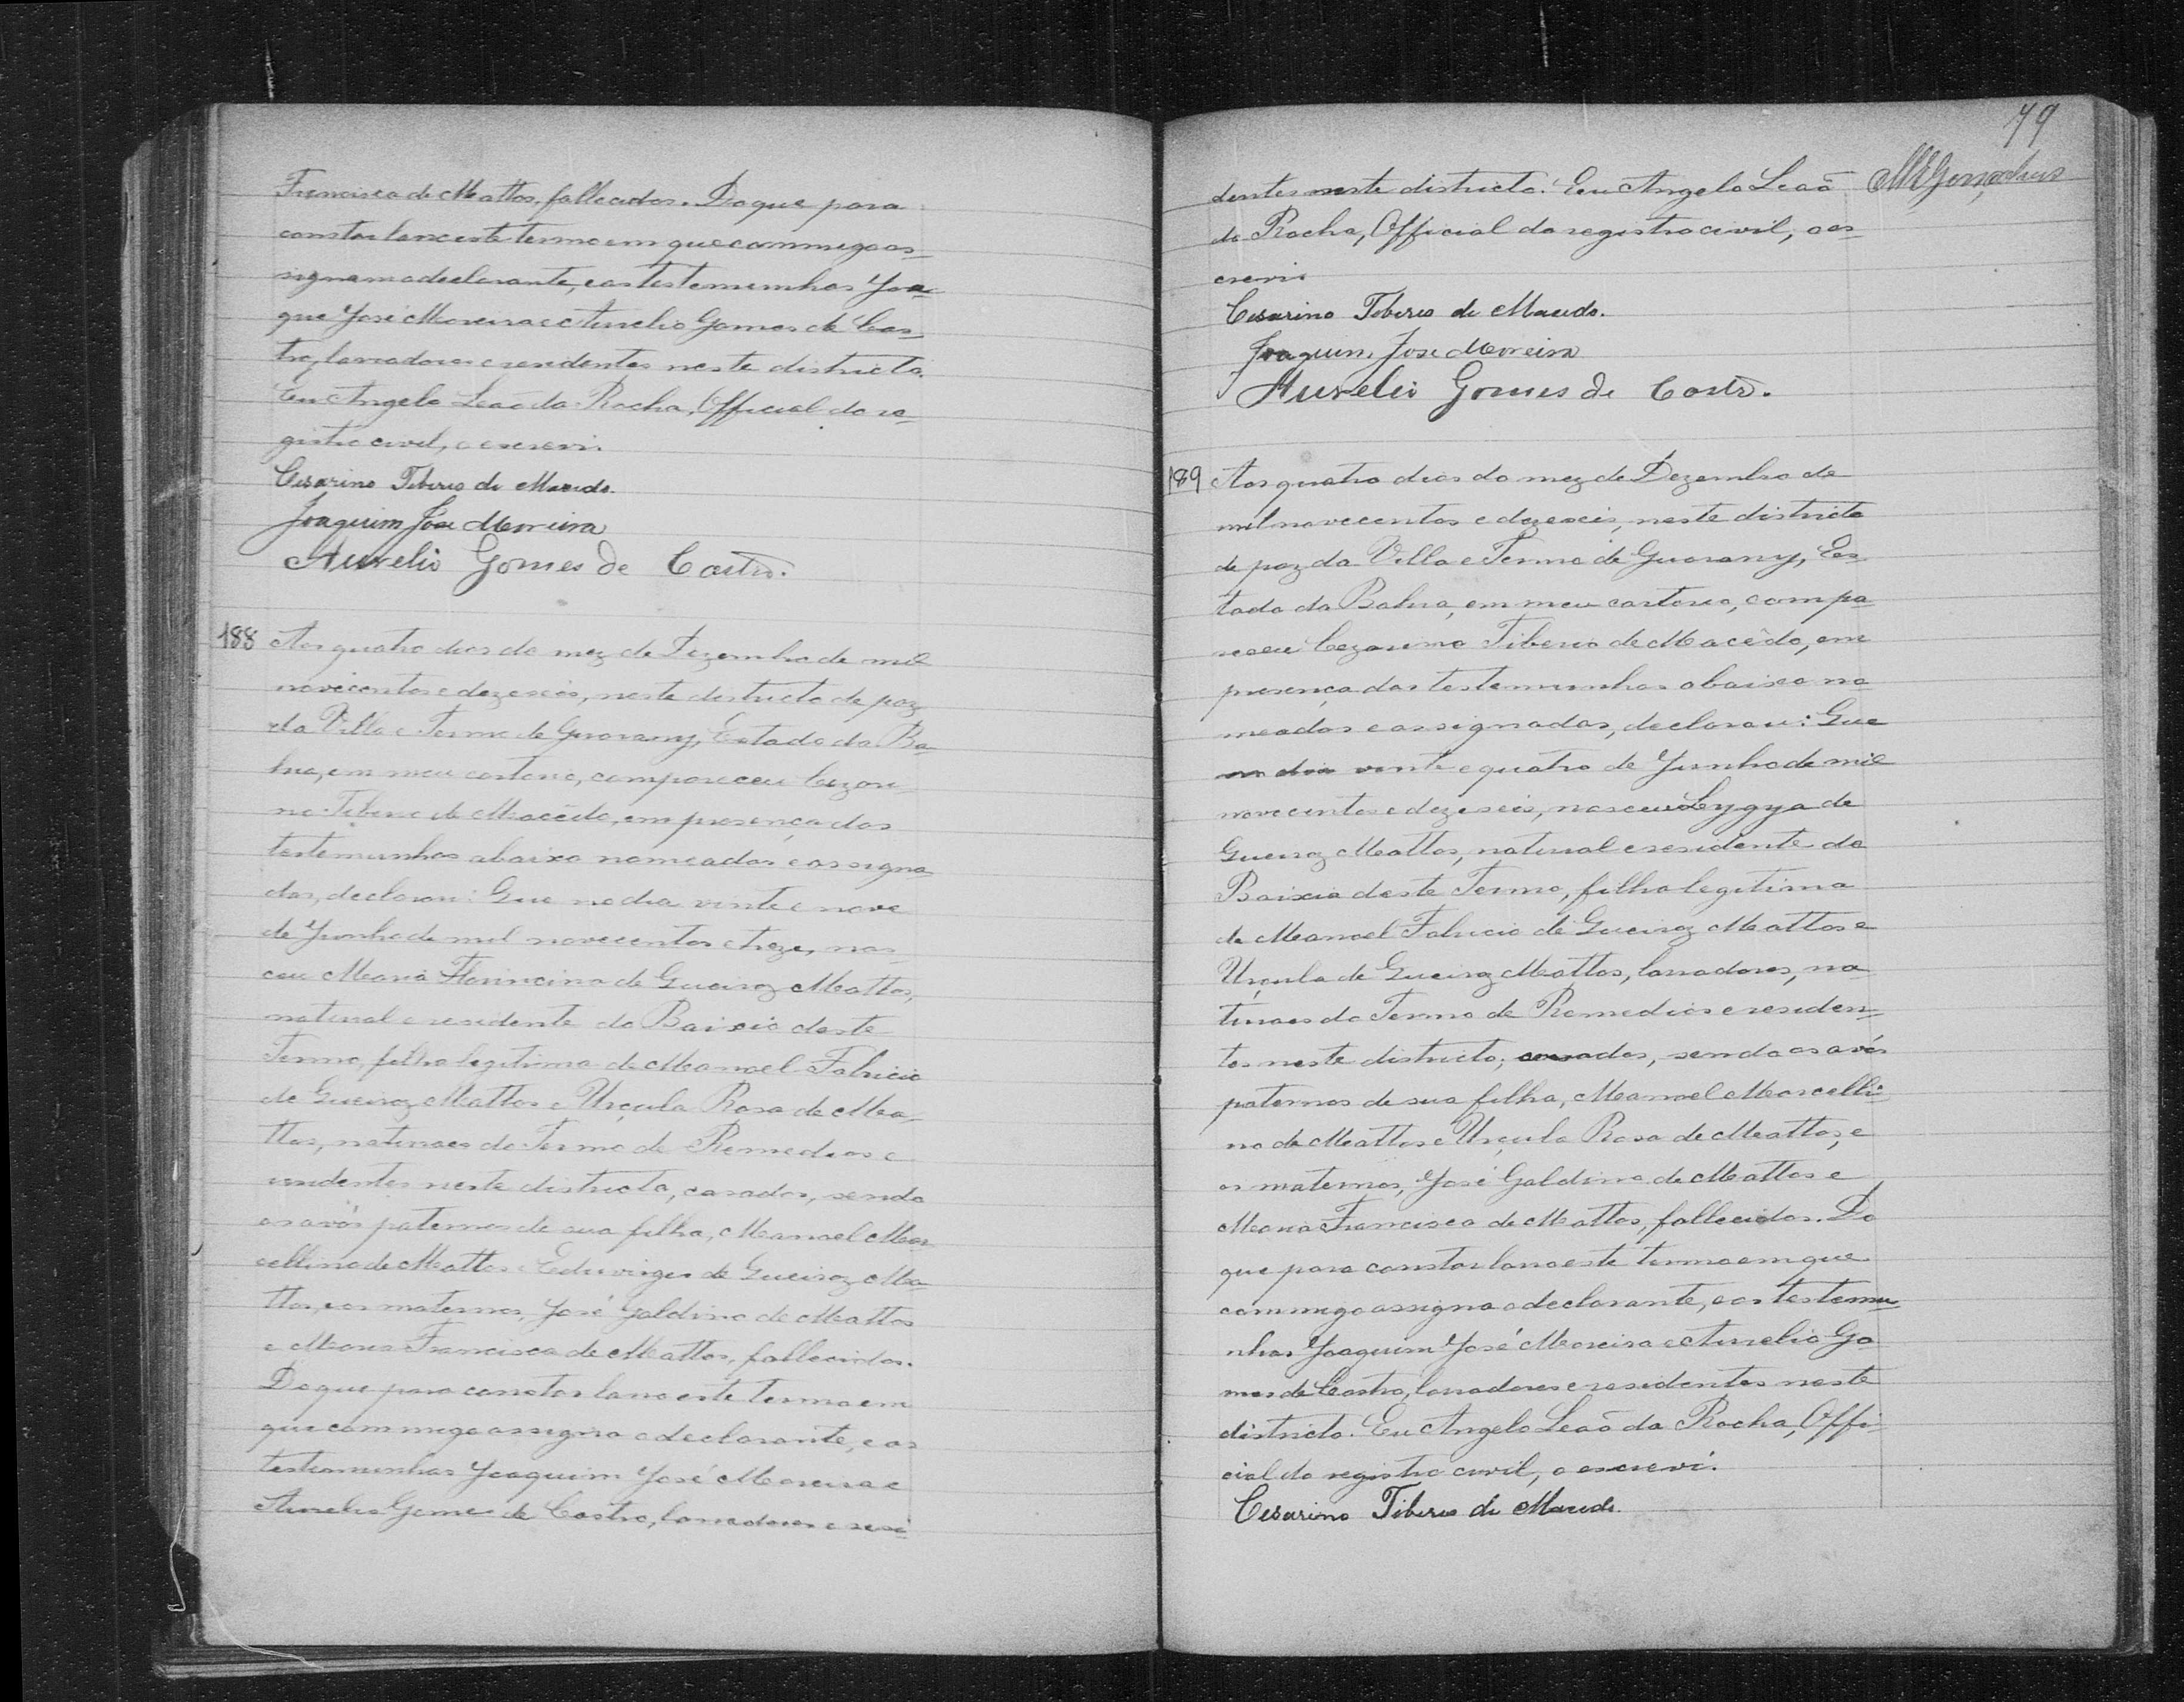 Francisca de Mattos, fallecidos. Do que para
constar lanc este termo em que commigo as-
signam o declarante, e as testemunhas Joa-
que José Moreira e Aurelio Gomes de Cas-
tro, lavradores e residentes neste districto.
Eu Angelo Leaõ da Rocha, Official do re-
gistro civil, o escrevi.
Cesarino Tiberio de Macedo.
Joaquim José Morreira
Aurelio Gomes de Castro.
188 Aos quatro dias do mez de Dezembro de mil
novecentos e dezeseis, neste districto de paz
da Villa e Termo de Guarany, Estado da Ba-
hia, em meu cartorio, compareceu Cezari-
no Tiberio de Macêdo, em presença das
testemunhas abaixo nomeadas e assigna-
das, declarou: Que no dia vinte e nove
de Junho de mil novecentos e treze, nas-
ceu Maria Florincina de Queiroz Mattos,
natural e residente do Baixio deste
Termo, filha legitima de Manoel Fabricio
de Queiroz Mattos e Urçula Rosa de Ma-
ttos, naturaes do Termo de Remedios e
residentes neste districto, casados, sendo
os avós paternos de sua filha, Manoel Mar-
cellino de Mattos e Eduvirges de Queiroz Ma-
ttos, e os maternos, José Galdino de Mattos
e Maria Francisca de Mattos, fallecidos.
Do que para constar lavro este termo em
que commigo assigna o declarante, e as
testemunhas Joaquim José Moreira e
Aurelio Gomes de Castro, lavradores e resi-
79
dentes neste districto. Eu Angelo Leaõ
da Rocha, Official do registro civil, o es-
crevi.
Cesarino Tiberio de Macedo.
Joaquim José Morreira
Aurelio Gomes de Castro.
189 Aos quatro dias do mez de Dezembro de
mil novecentos e dezeseis, neste districto
de paz da Villa e Termo de Guarany, Es-
tado da Bahia, em meu cartorio, compa-
receu Cezarino Tiberio de Macêdo, em
presença das testemunhas abaixo no
meadas e assignadas, declarou: Que
no dia vinte e quatro de Junho de mil
novecentos e dezeseis, nasceu Lygya de
Queiroz Mattos, natural e residente do
Baixio deste Termo, filha legitima
de Manoel Fabricio de Queiroz Mattos e
Urçula de Queiroz Mattos, lavradores, na-
turaes do Termo de Remedios e residen-
tes neste districto, casados, sendo os avós
paternos de sua filha, Manoel Marcelli-
no de Mattos e Urçula Rosa de Mattos, e
os maternos, José Galdino de Mattos e
Maria Francisca de Mattos, fallecidos. Do
que para constar lavro este termo em que
commigo assigna o declarante, e as testemu-
nhas Joaquim José Moreira e Aurelio Go
mes de Castro, lavradores e residentes neste
districto. Eu Angelo Leaõ da Rocha, Offi-
cial do registro civil, o escrevi.
Cesarino Tiberio de Macedo.